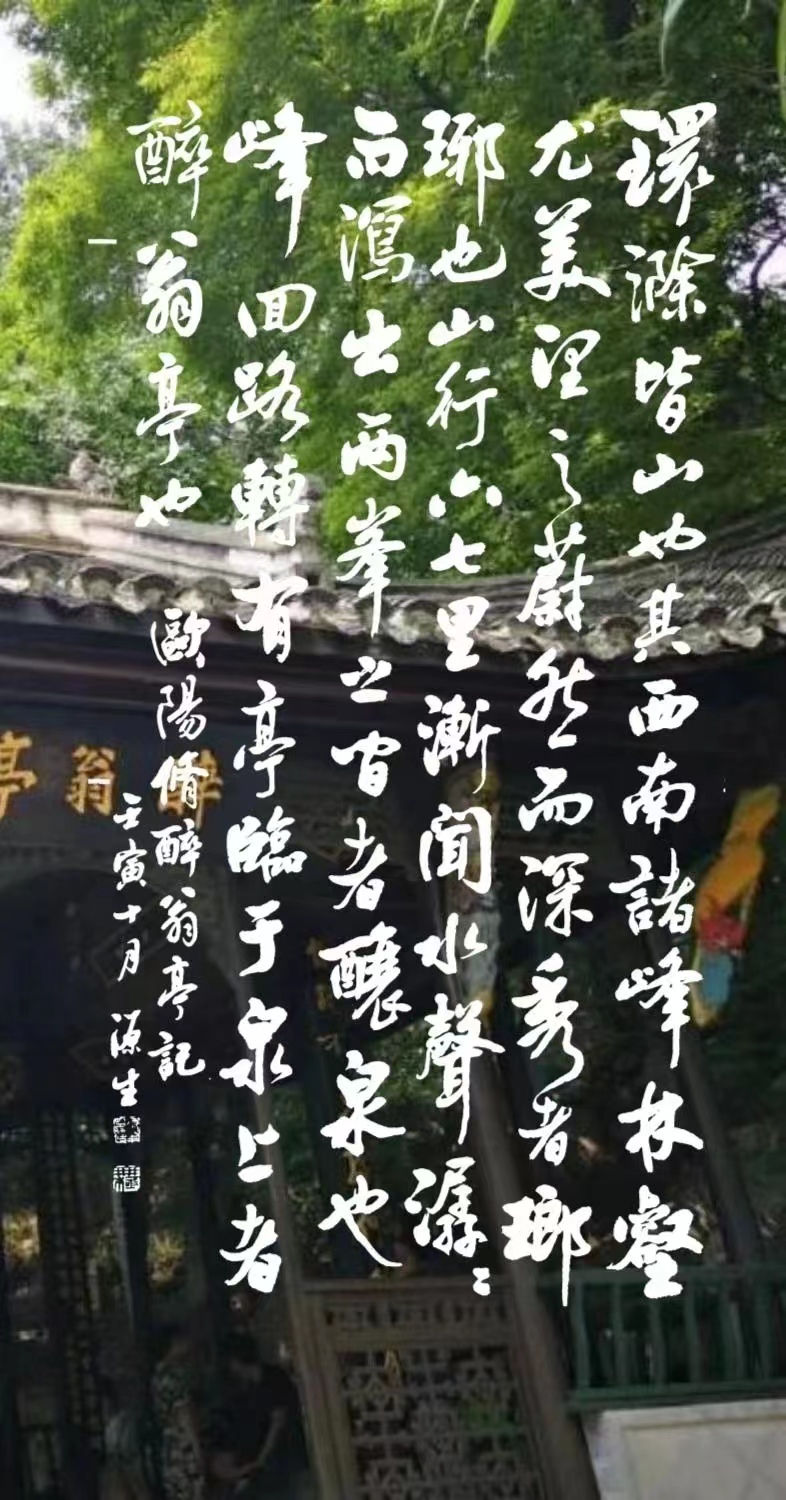 環滁皆山也其西南諸峰林壑
尤美望之蔚然而深秀者瑯
琊也山行六七里漸聞水聲潺〻
而瀉出兩峯之間者釀泉也
峰回路轉有亭臨于泉上者
醉翁亭也
歐陽脩醉翁亭記
壬寅十月 源生
醉翁亭